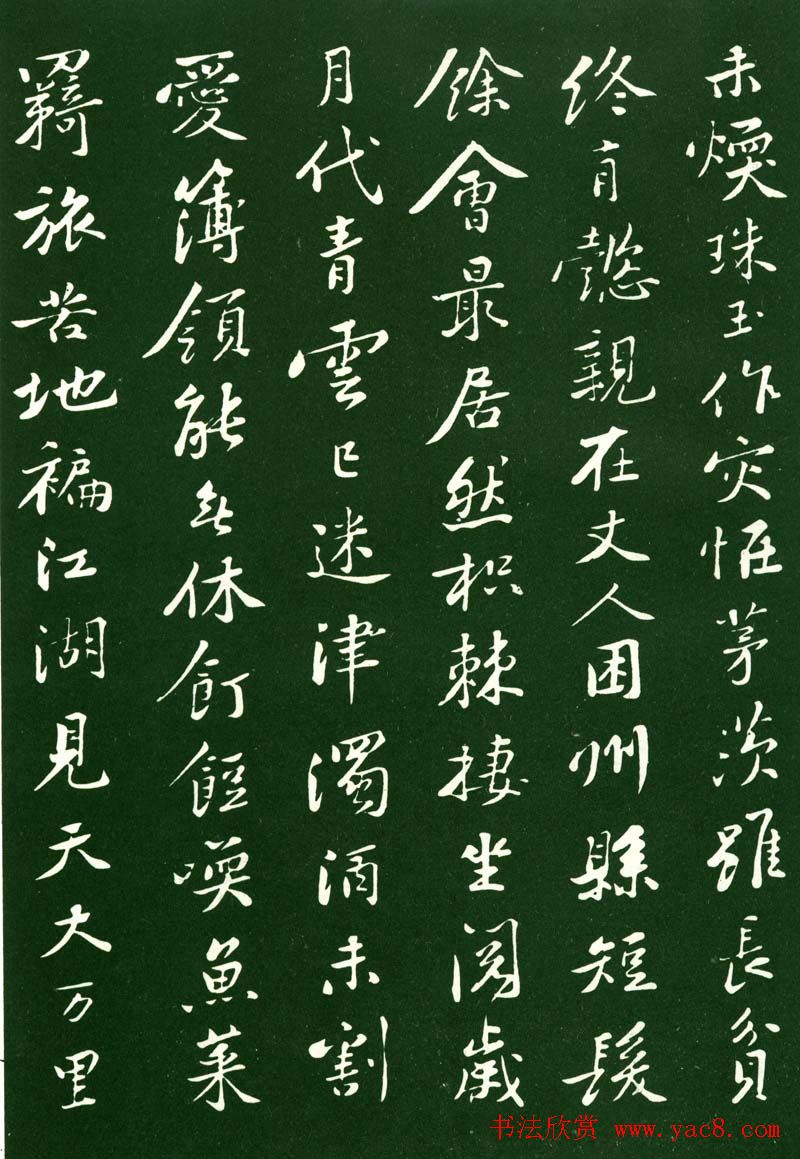 未燠珠玉作灾怪茅茨雖長貧
終有懿親在丈人困州縣短髮
餘會最居然枳棘棲坐閱歲
月代青雲已迷津濁酒未割
愛簿領能無休飣餖喚魚菜
羇旅苦地褊江湖見天大万里
书法欣赏 www.yac8.com